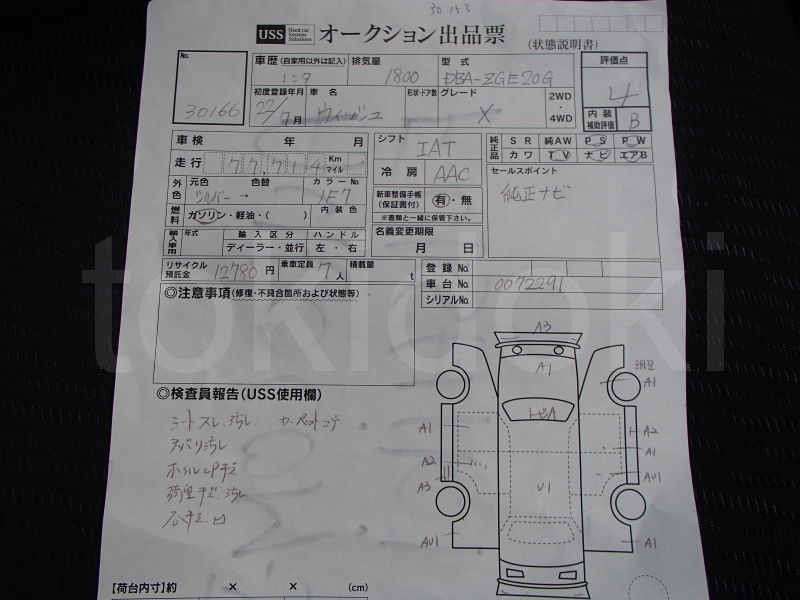 30153
USS Used car System Solutions オークション出品票 (状態説明書)
No. 30166
車歴 (自家用以外は記入) レンタ
排気量 1800
型式 DBA-ZGE20G
評価点 4
初度登録年月 22/7月
車名 ウィッシュ
形状・ドア数
グレード X
2WD・4WD
内装補助評価 B
車検 年 月
シフト IAT
純正品 SR 純AW PS PW
カワ TV ナビ エアB
走行 77,714 Km マイル
冷房 AAC
セールスポイント
純正ナビ
外色 元色 色替 カラーNo.
シルバー → 1F7
新車整備手帳(保証書付) 有・無
※書類と一緒に保管下さい。
燃料 ガソリン・軽油・( ) 内装色
輸入車用 年式 輸入区分 ハンドル
ディーラー・並行 左・右
名義変更期限 月 日
リサイクル預託金 12780円
乗車定員 7人
積載量 t
登録No.
車台No. 0072291
シリアルNo.
◎注意事項(修復・不具合箇所および状態等)
◎検査員報告(USS使用欄)
シートスレ、汚レ カーペットコゲ
内バリ汚レ
ホイルCPキズ
荷室キズ、汚レ
A3
A1
トビA
A1
A1
A2
A2
A1
A3
U1
AU1
AU1
A1
【荷台内寸】約 × × (cm)
tokidoki